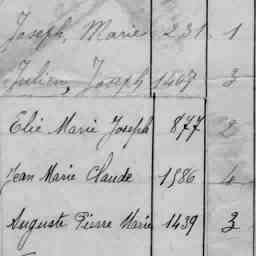 Joseph, Marie 231 1
Julien, Joseph 1467 3
Elie Marie Joseph 877 2
Jean Marie Claude 1586 4
Auguste Pierre Marie 1439 3